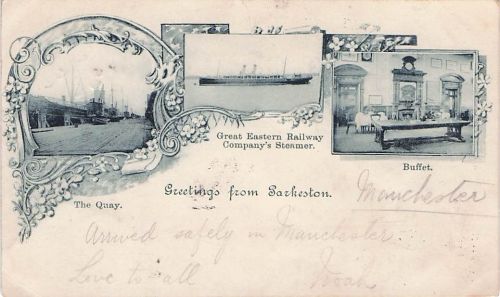 Great Eastern Railway
Company's Steamer.
Buffet.
The Quay.
Greetings from Parkeston.
Manchester
Arrived safely in Manchester
Love to all Noah